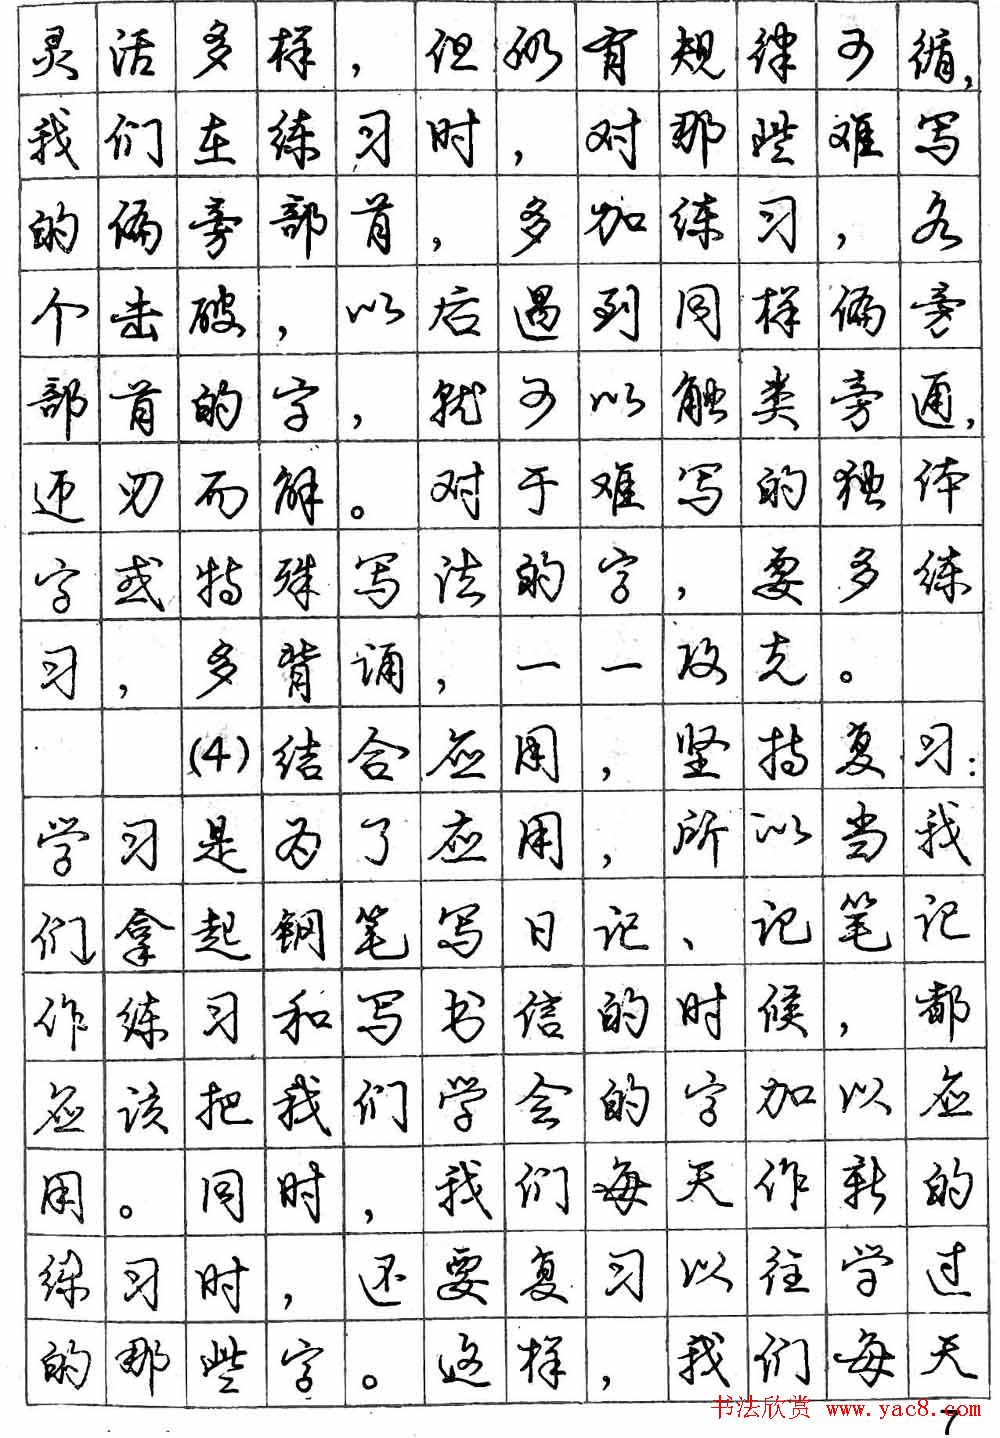 灵活多样，但仍有规律可循，
我们在练习时，对那些难写
的偏旁部首，多加练习，各
个击破，以后遇到同样偏旁
部首的字，就可以触类旁通，
迎刃而解。对于难写的独体
字或特殊写法的字，要多练
习，多背诵，一一攻克。
(4)结合应用，坚持复习：
学习是为了应用，所以当我
们拿起钢笔写日记、记笔记
作练习和写书信的时候，都
应该把我们学会的字加以应
用。同时，我们每天作新的
练习时，还要复习以往学过
的那些字。这样，我们每天
书法欣赏 www.yac8.com
7